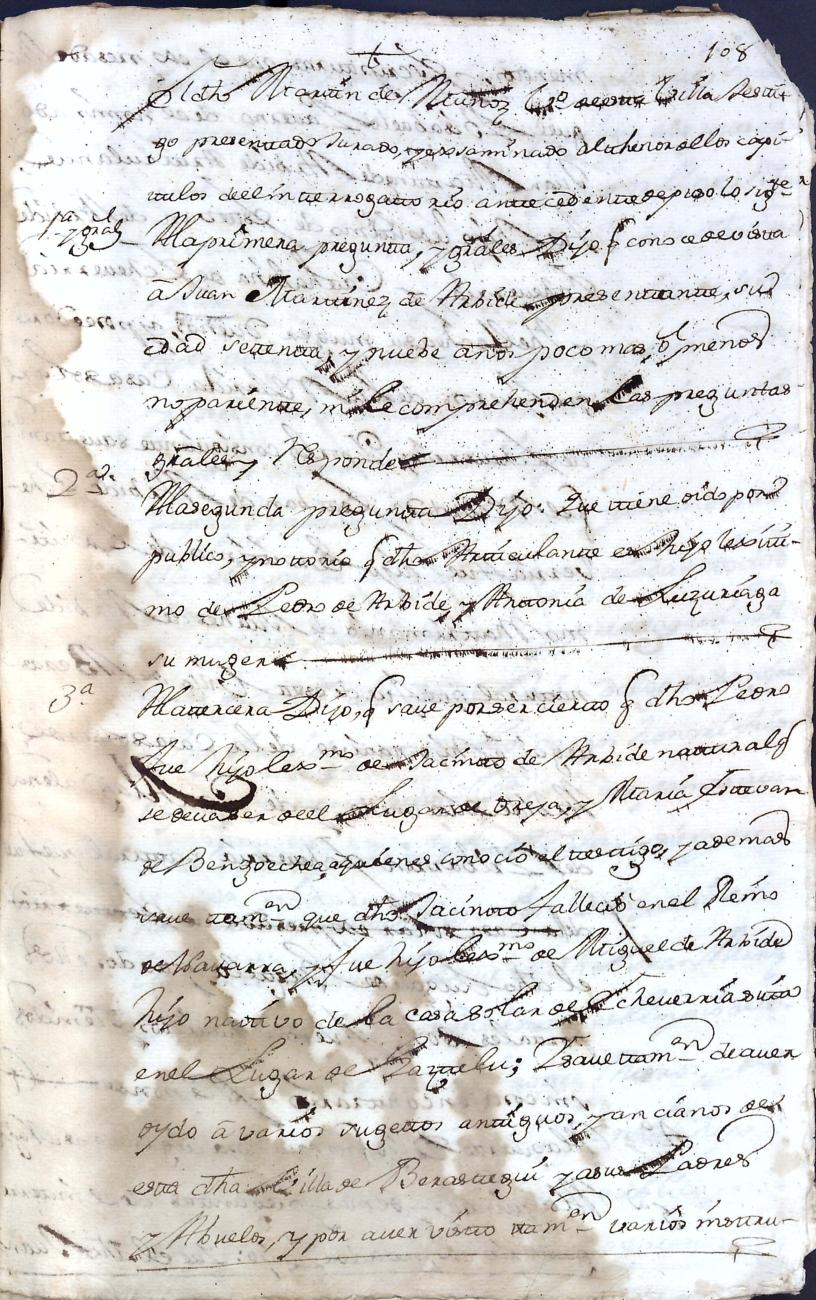 108
El dho Martin de Muñoz Vº de esta Villa testi-
go presentado Jurado, y exsaminado al thenor de los capi-
tulos del interrogattorio antecedente depuso lo sigte
1ª y grãl
A la primera pregunta, y grãles Dijo q conoce de vista
a Juan Martinez de Arbide presentante, su
edad settenta, y nuebe años poco mas, o menos
no pariente, ni le comprehenden las preguntas
grãles, y Responde
2ª
A la segunda pregunta Dijo: Que ttiene oido por
publico, y nottorio q dho Articulante es hijo lexitti-
mo de Pedro de Arbide, y Antonia de Luzuriaga
su muger
3ª
A la tercera Dijo, q save por ser cierto q dho Pedro
fue hijo lexmo de Jacinto de Arbide natural q
se deva ser de el Lugar de Oreja, y Maria Estevan
de Bengoechea, a quienes conocio el testigo, y ademas
save tamen que dho Jacinto fallecio en el Reino
de Navarra, y fue hijo lexmo de Miguel de Arbide
hijo nativo de la casa solar de Echeverria sita
en el Lugar de; Y save tamen de aver
oydo a varios sugettos antiguos, y ancianos de
esta dha Villa de Berastegui y a sus Padres
y Abuelos, y por aver visto tamen varios instru-